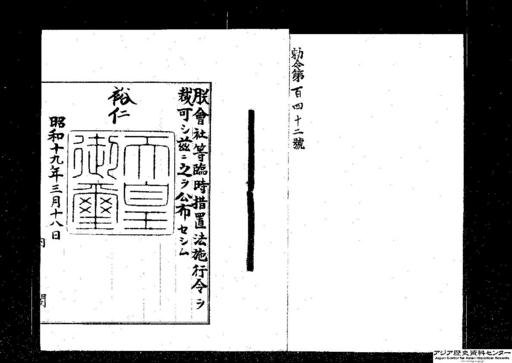 勅令第百四十二號
朕會社等臨時措置法施行令ヲ
裁可シ茲ニ之ヲ公布セシム
裕仁
天皇御璽
昭和十九年三月十八日
内閣
アジア歴史資料センター
Japan Center for Asian Historical Records